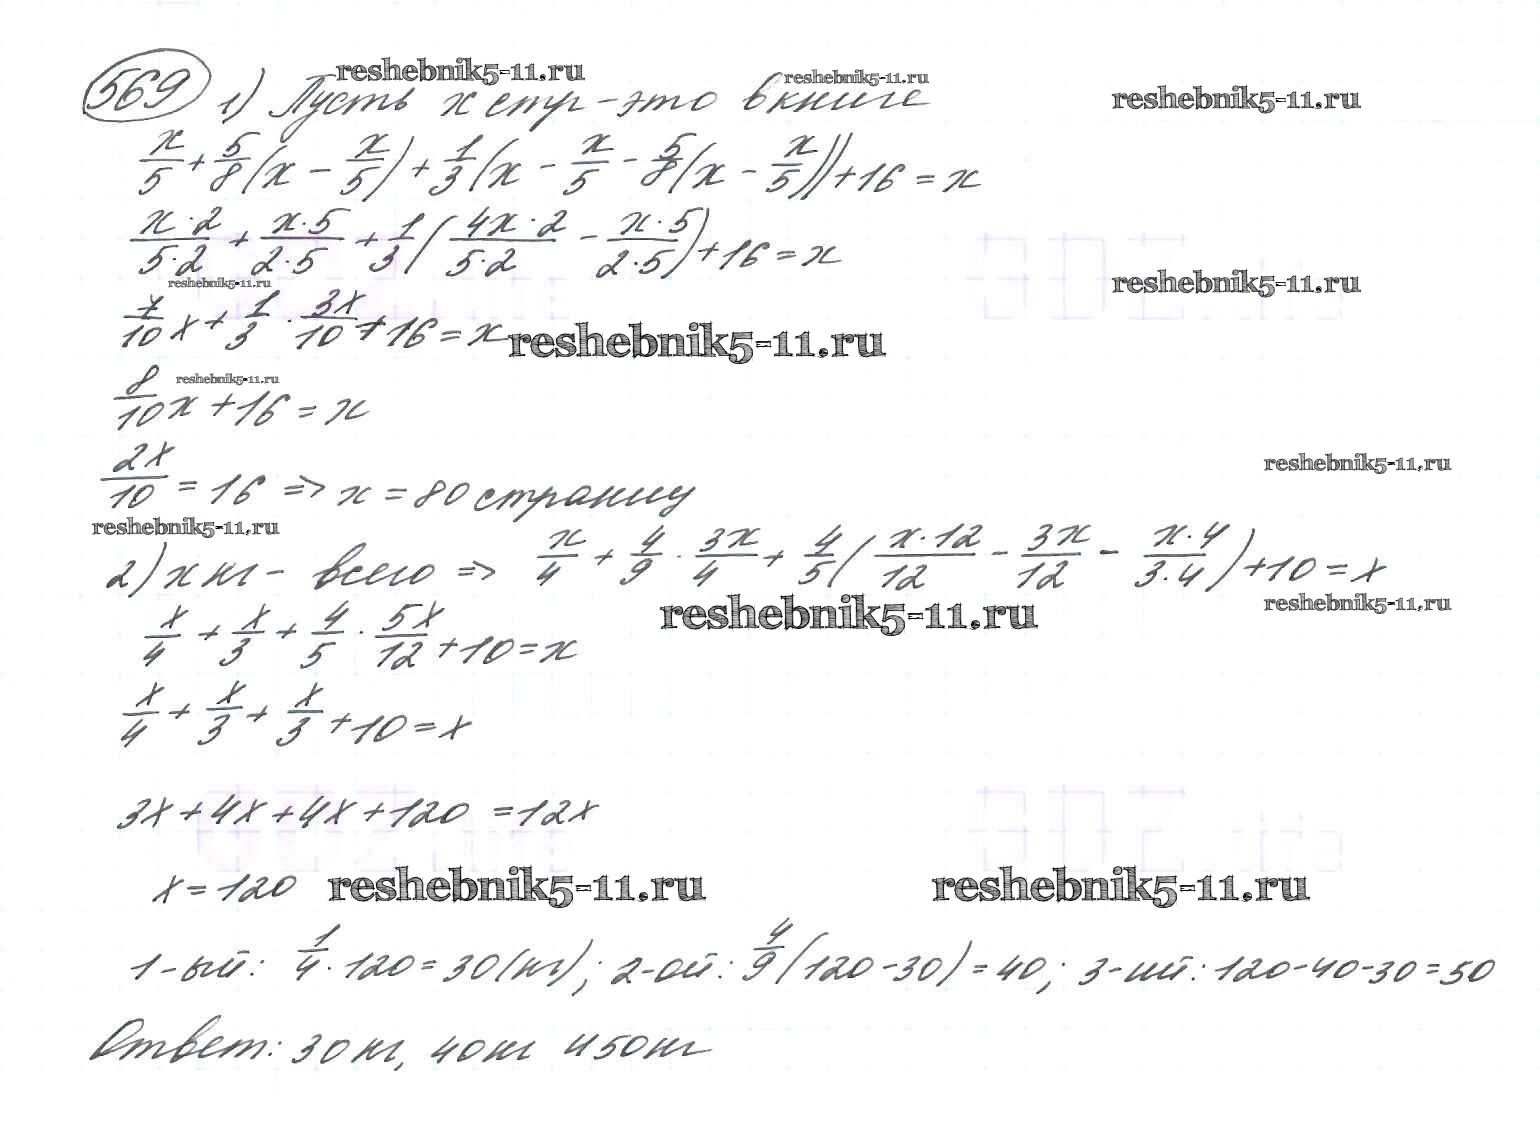 reshebnik5-11.ru reshebnik5-11.ru
569 1) Пусть x стр - это в книге reshebnik5-11.ru
x/5 + 5/8(x - x/5) + 1/3(x - x/5 - 5/8(x - x/5)) + 16 = x
x·2/5·2 + x·5/2·5 + 1/3(4x·2/5·2 - x·5/2·5) + 16 = x
reshebnik5-11.ru reshebnik5-11.ru
7/10 x + 1/3 · 3x/10 + 16 = x reshebnik5-11.ru
reshebnik5-11.ru
8/10 x + 16 = x
reshebnik5-11.ru
2x/10 = 16 => x = 80 страниц
reshebnik5-11.ru
2) x кг - всего => x/4 + 4/9 · 3x/4 + 4/5(x·12/12 - 3x/12 - x·4/3·4) + 10 = x
reshebnik5-11.ru reshebnik5-11.ru
x/4 + x/3 + 4/5 · 5x/12 + 10 = x
x/4 + x/3 + x/3 + 10 = x
3x + 4x + 4x + 120 = 12x
x = 120 reshebnik5-11.ru reshebnik5-11.ru
1-ый: 1/4 · 120 = 30 (кг); 2-ой: 4/9(120 - 30) = 40; 3-ий: 120 - 40 - 30 = 50
Ответ: 30 кг, 40 кг и 50 кг